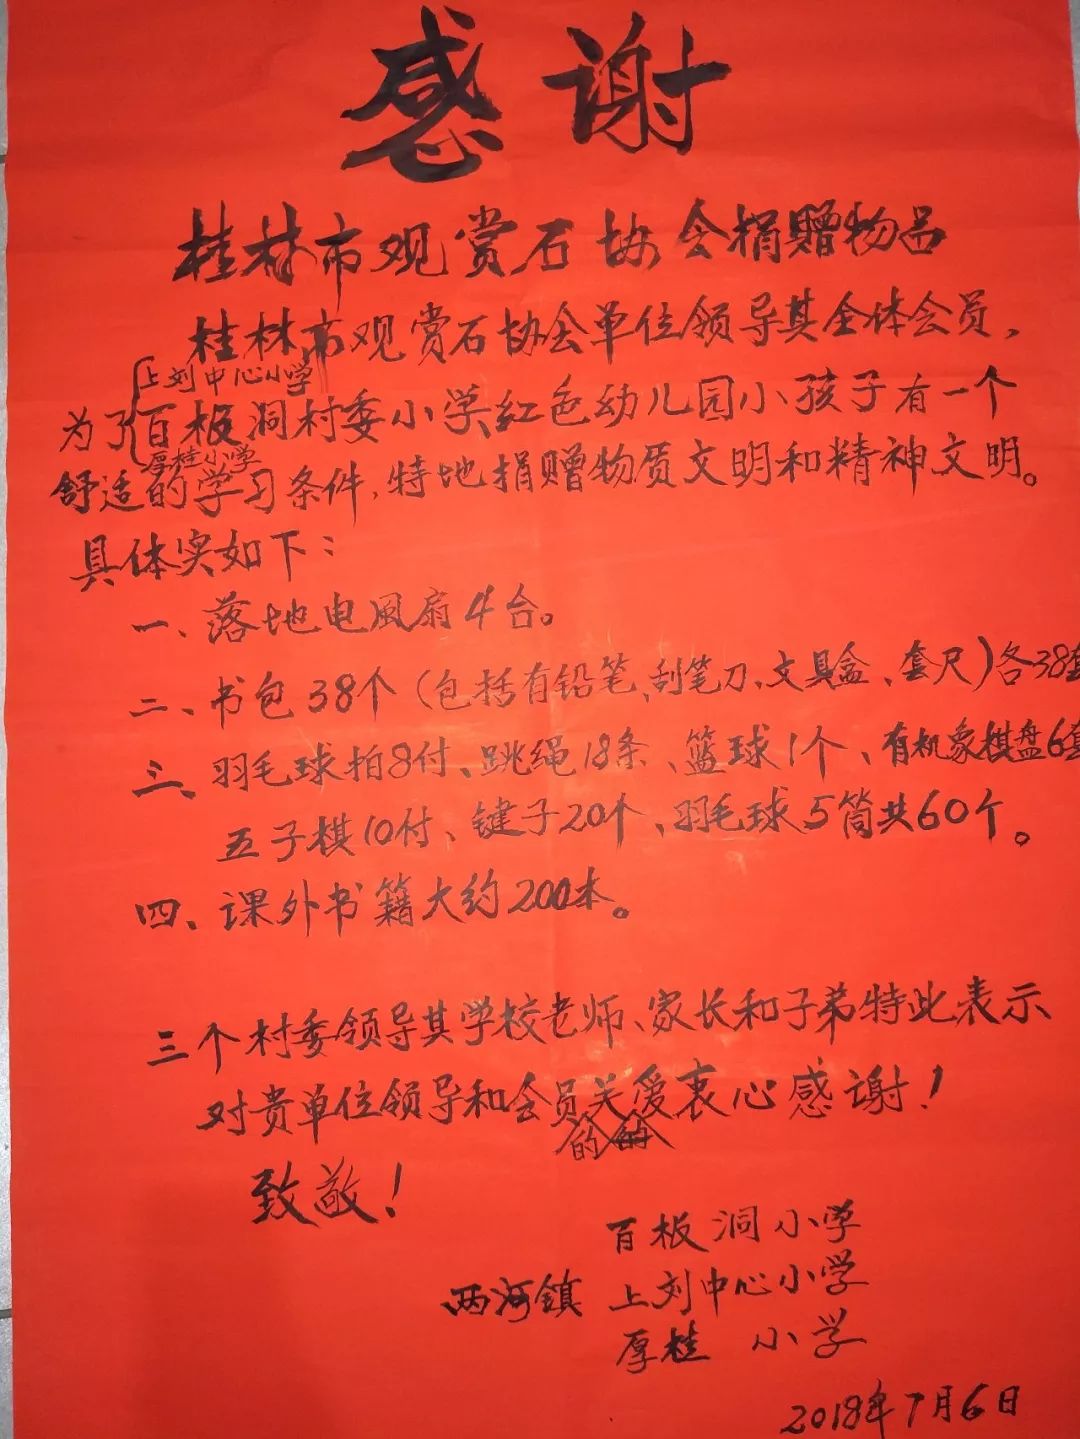 感谢
桂林市观赏石协会捐赠物品
桂林市观赏石协会单位领导其全体会员,
上刘中心小学
为了百板洞村委小学红色幼儿园小孩子有一个
厚桂小学
舒适的学习条件,特地捐赠物质文明和精神文明。
具体实如下:
一、落地电風扇4台。
二、书包38个(包括有铅笔、刮笔刀、文具盒、套尺)各38套
三、羽毛球拍8付、跳绳18条、篮球1个、有机象棋盘6套
五子棋10付、键子20个、羽毛球5筒共60个。
四、课外书籍大约200本。
三个村委领导其学校老师、家长和子弟特此表示
对贵单位领导和会员关爱衷心感谢!
的 的
致敬!
百板洞小学
两河鎮 上刘中心小学
厚桂 小学
2018年7月6日